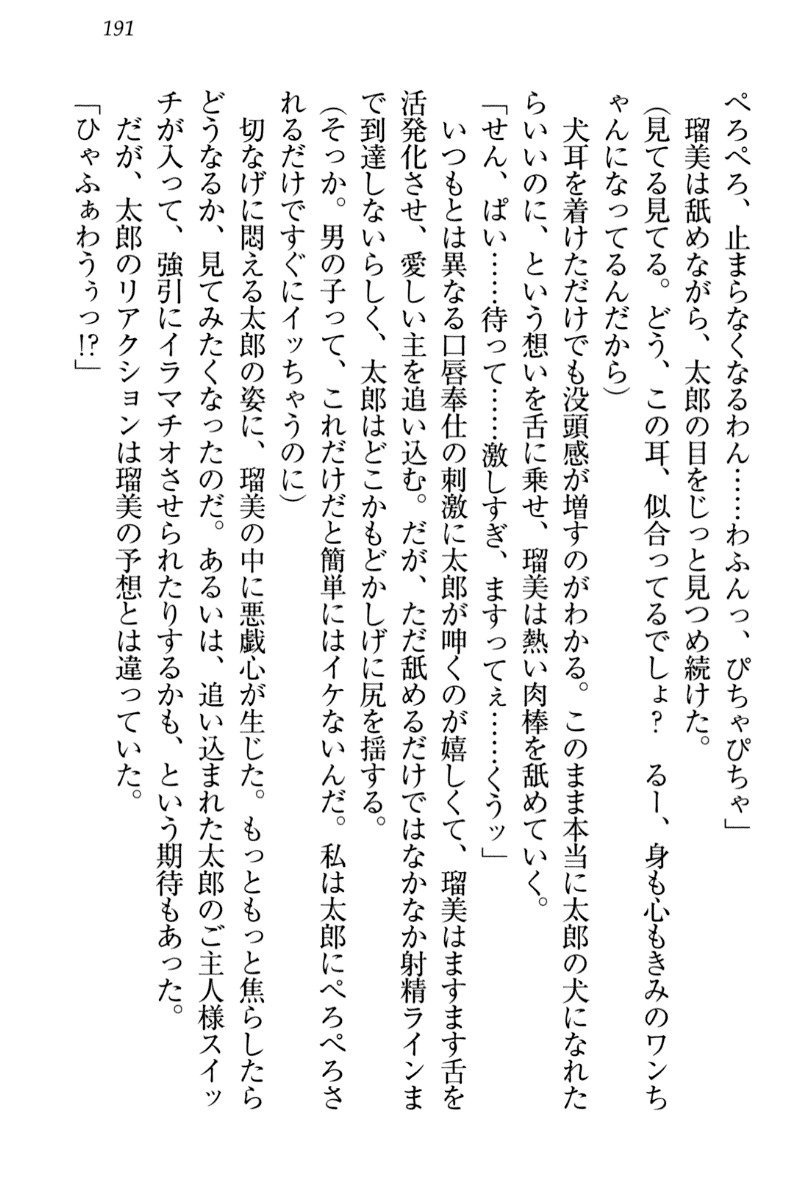 191
ぺろぺろ、止まらなくなるわん……わふんっ、ぴちゃぴちゃ」
瑠美は舐めながら、太郎の目をじっと見つめ続けた。
(見てる見てる。どう、この耳、似合ってるでしょ?　るー、身も心もきみのワンち
ゃんになってるんだから)
犬耳を着けただけでも没頭感が増すのがわかる。このまま本当に太郎の犬になれた
らいいのに、という想いを舌に乗せ、瑠美は熱い肉棒を舐めていく。
「せん、ぱい……待って……激しすぎ、ますってぇ……くうッ」
いつもとは異なる口唇奉仕の刺激に太郎が呻くのが嬉しくて、瑠美はますます舌を
活発化させ、愛しい主を追い込む。だが、ただ舐めるだけではなかなか射精ラインま
で到達しないらしく、太郎はどこかもどかしげに尻を揺する。
(そっか。男の子って、これだけだと簡単にはイケないんだ。私は太郎にぺろぺろさ
れるだけですぐにイッちゃうのに)
切なげに悶える太郎の姿に、瑠美の中に悪戯心が生じた。もっともっと焦らしたら
どうなるか、見てみたくなったのだ。あるいは、追い込まれた太郎のご主人様スイッ
チが入って、強引にイラマチオさせられたりするかも、という期待もあった。
だが、太郎のリアクションは瑠美の予想とは違っていた。
「ひゃふぁわうぅっ!?」